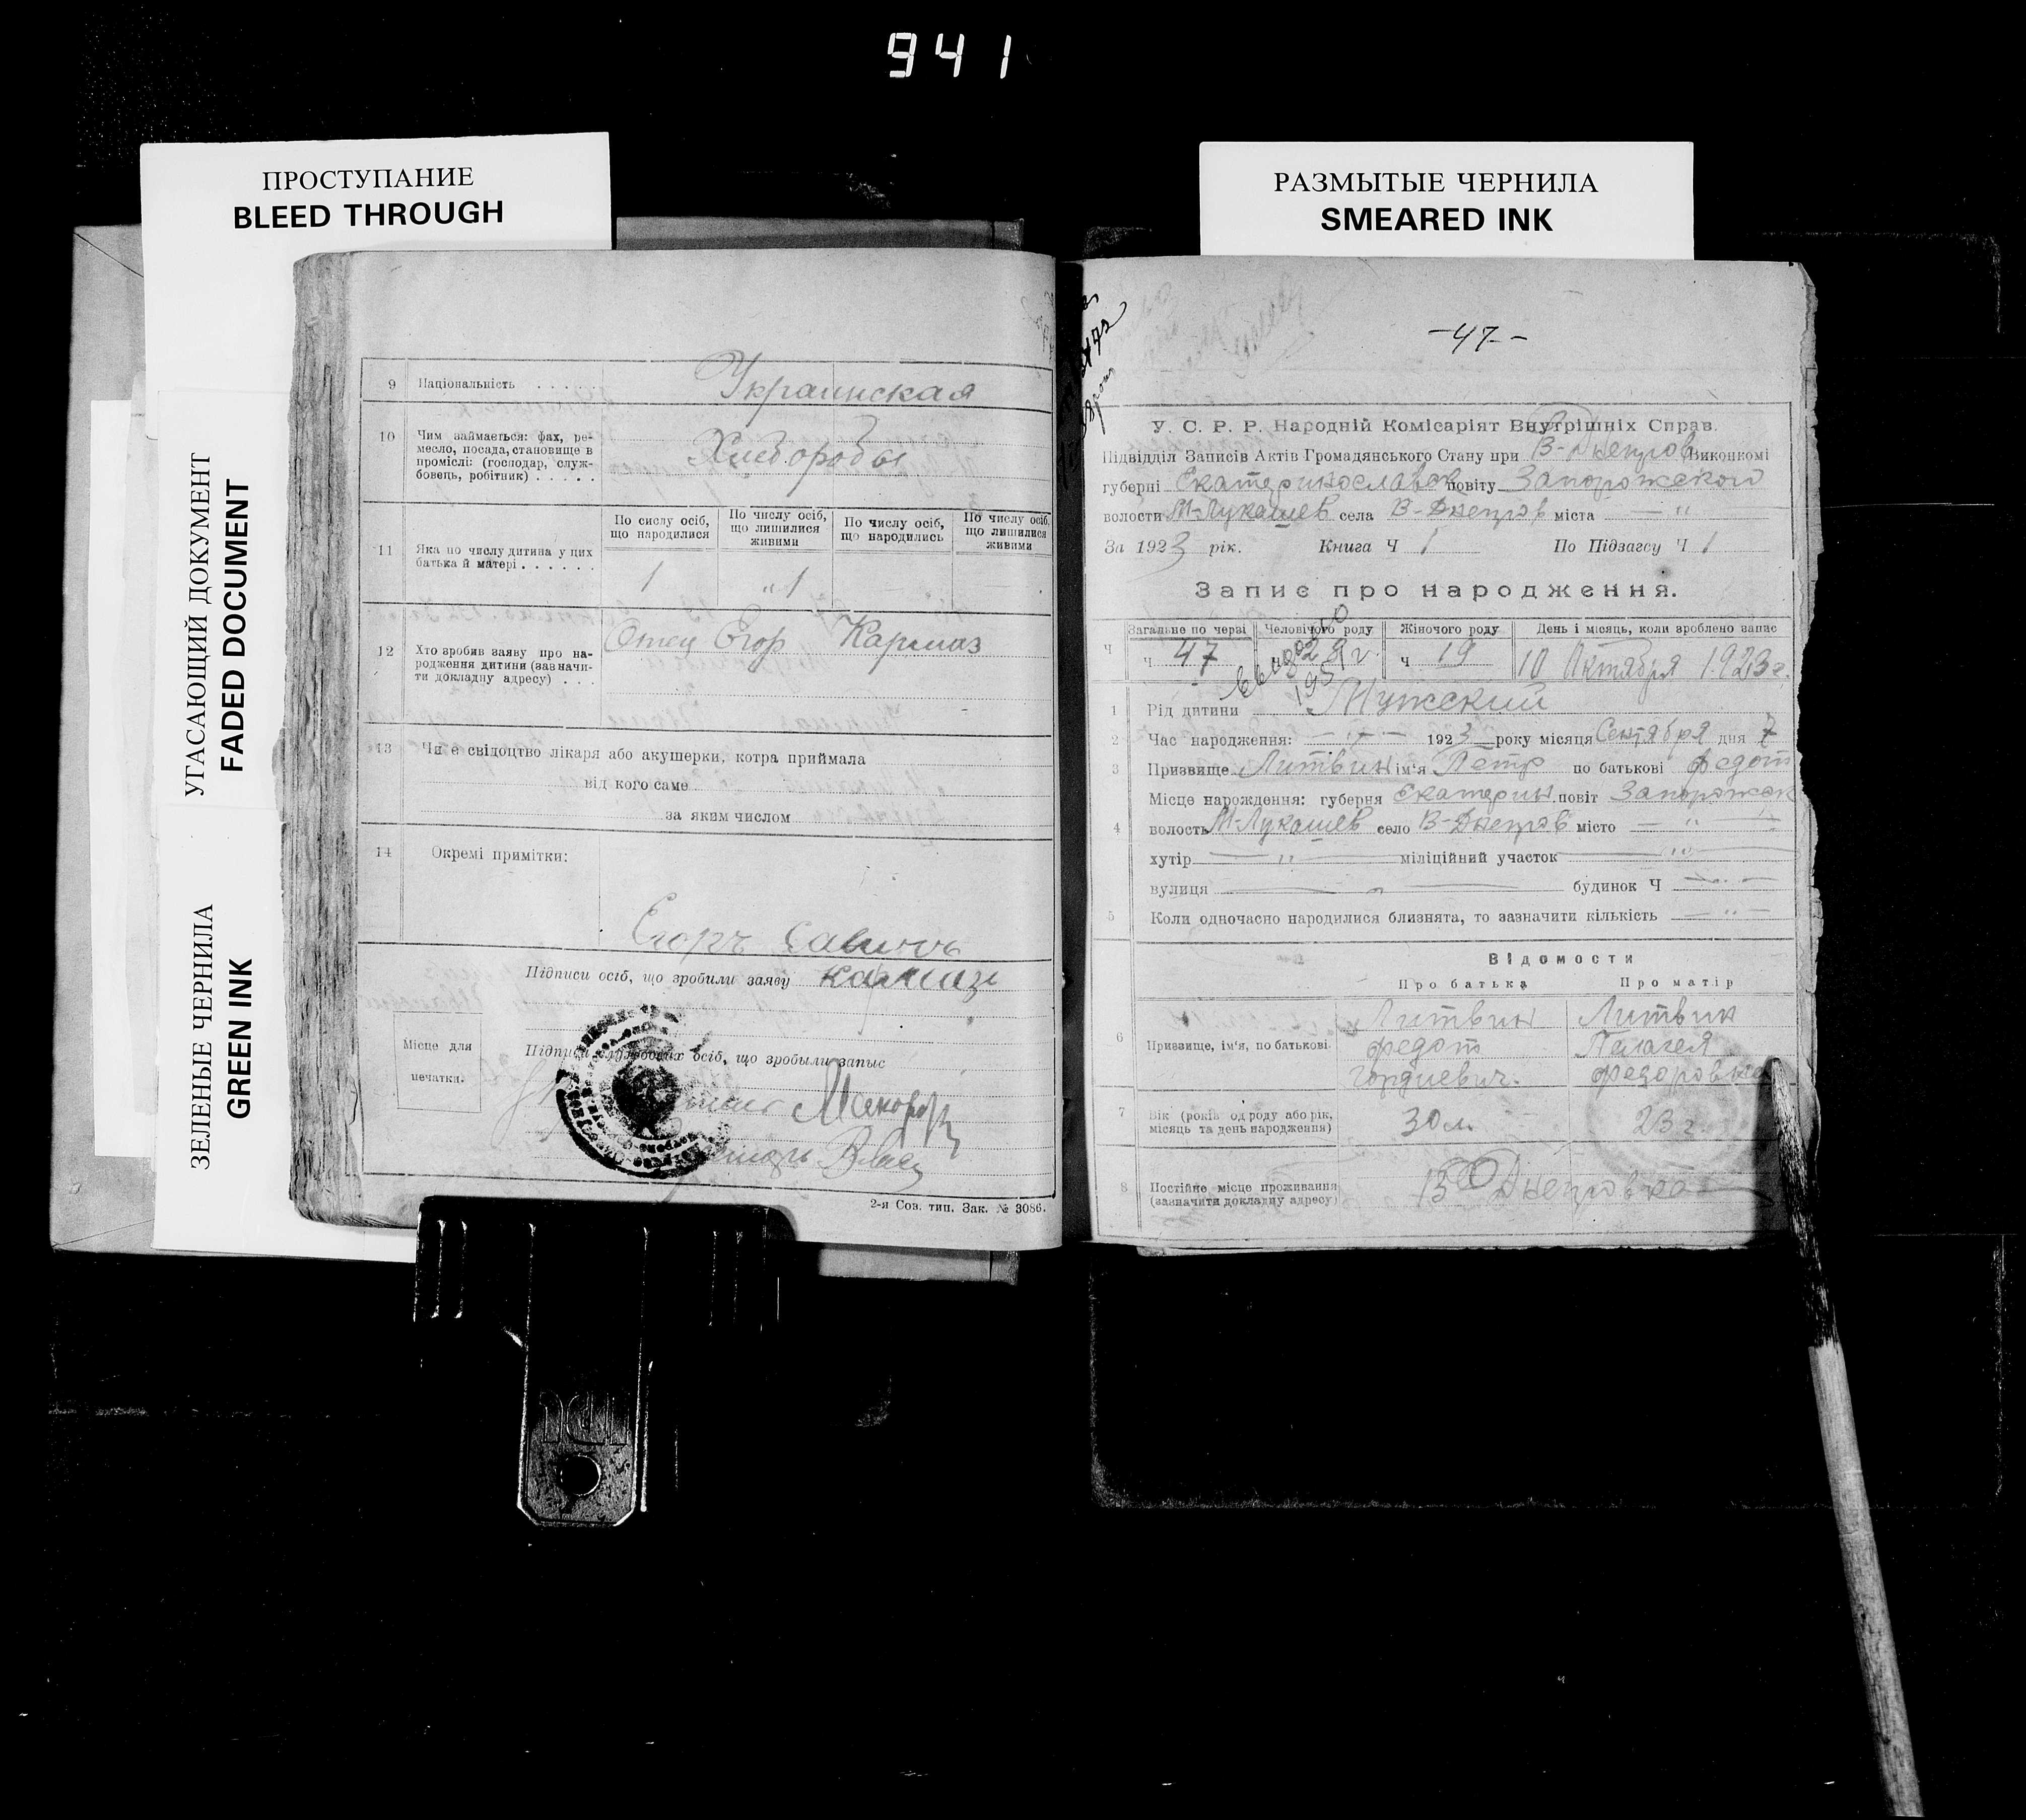 941
ПРОСТУПАНИЕ
BLEED THROUGH
УГАСАЮЩИЙ ДОКУМЕНТ
FADED DOCUMENT
ЗЕЛЕНЫЕ ЧЕРНИЛА
GREEN INK
9 Національність . . . . . Украинская
10 Чим займається: фах, ре-
месло, посада, становище в
промислі: (господар, служ-
бовець, робітник) . . . . . Хлеборобы
11 Яка по числу дитина у цих
батька й матері . . . . . .
По сислу осіб, що народилися
По числу осіб, що лишилися живими
По числу осіб, що народились
По число осіб, що лишилися живими
1 " 1
12 Хто зробив заяву про на-
родження дитини (зазначи-
ти докладну адресу) . . . Отец Егор Кармаз
13 Чи є свідоцтво лікаря або акушерки, котра приймала
від кого саме
за яким числом
14 Окремі примітки:
Егоръ Савичъ
Підписи осіб, що зробили заяву Кармазъ
Місце для
печатки.
Підписи службових осіб, що зробыли запыс
2-я Сов. тип. Зак. № 3086.
РАЗМЫТЫЕ ЧЕРНИЛА
SMEARED INK
-47-
У. С. Р. Р. Народній Комісаріят Внутрішніх Справ.
Підвідділ Записів Актів Громадянського Стану при В-Днепров Виконкомі
губерні Екатеринославск повіту Запорожского
волости М-Лукашев села В-Днепров міста — " —
За 1923 рік. Книга Ч 1 По Підзагсу Ч 1
Запис про народження.
Загальне по черзі Человічого роду Жіночого роду День і місяць, коли зроблено запис
ч 47 28 ч 19 10 Октября 1923 г.
1 Рід дитини Мужеский
2 Час народження: — " — 1923 року місяця Сентября дня 7
3 Призвище Литвин ім'я Петр по батькові Федот
4 Місце нарождення: губерня Екатерин. повіт Запорожск
волость М-Лукашев село В-Днепров місто — " —
хутір — " — міліційний участок — " —
вулиця — " — будинок Ч — " —
5 Коли одночасно народилися близнята, то зазначити кількість — " —
Відомости
Про батька Про матір
6 Призвище, ім'я, по батькові Литвин Литвин
Федот Пелагея
Гордиевич. Федоровна
7 Вік (років од роду або рік,
місяць та день народження) 30 л. 23 г.
8 Постійне місце проживання
(зазначити докладну адресу) В Днепровка